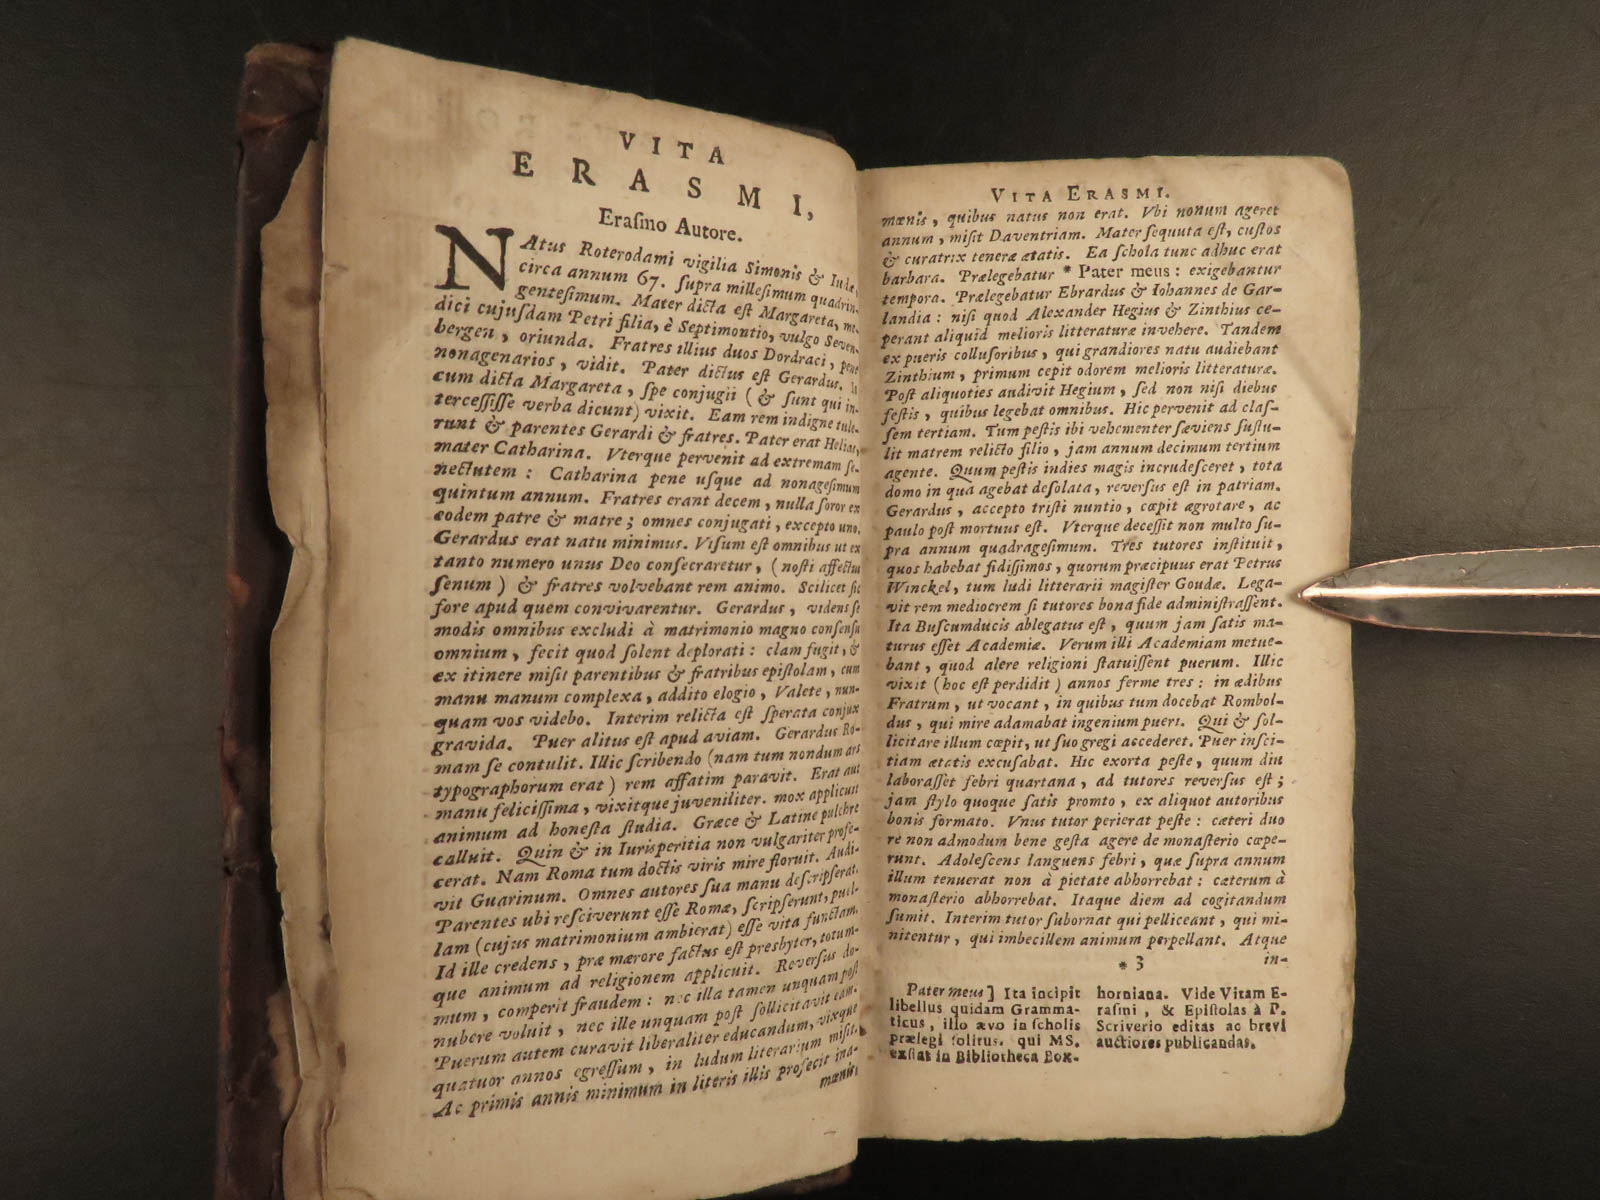 VITA
ERASMI,
Erasmo Autore.
NAtus Roterodami vigilia Simonis & Iudæ,
circa annum 67. ſupra milleſimum quadrin-
genteſimum. Mater dicta eſt Margareta, me-
dici cujuſdam Petri filia, è Septimontio, vulgo Seven-
bergen, oriunda. Fratres illius duos Dordraci, pene
nonagenarios, vidit. Pater dictus eſt Gerardus. Is
cum dicta Margareta, ſpe conjugii (& ſunt qui in-
terceſſiſſe verba dicunt) vixit. Eam rem indigne tule-
runt & parentes Gerardi & fratres. Pater erat Helias,
mater Catharina. Vterque pervenit ad extremam ſe-
nectutem: Catharina pene uſque ad nonageſimum
quintum annum. Fratres erant decem, nulla ſoror ex
eodem patre & matre; omnes conjugati, excepto uno.
Gerardus erat natu minimus. Viſum eſt omnibus ut ex
tanto numero unus Deo conſecraretur, (noſti affectus
ſenum) & fratres volvebant rem animo. Scilicet ſic
fore apud quem convivarentur. Gerardus, videns ſe
modis omnibus excludi à matrimonio magno conſenſu
omnium, fecit quod ſolent deplorati: clam fugit, &
ex itinere miſit parentibus & fratribus epiſtolam, cum
manu manum complexa, addito elogio, Valete, nun-
quam vos videbo. Interim relicta eſt ſperata conjux
gravida. Puer alitus eſt apud aviam. Gerardus Ro-
mam ſe contulit. Illic ſcribendo (nam tum nondum ars
typographorum erat) rem affatim paravit. Erat aut
manu feliciſſima, vixitque juveniliter. mox applicuit
animum ad honeſta ſtudia. Græce & Latine pulchre
calluit. Quin & in Iurisperitia non vulgariter profe-
cerat. Nam Roma tum doctis viris mire floruit. Audi-
vit Guarinum. Omnes autores ſua manu deſcripſerat.
Parentes ubi reſciverunt eſſe Romæ, ſcripſerunt, puel-
lam (cujus matrimonium ambierat) eſſe vita functam.
Id ille credens, præ mærore factus eſt presbyter, totum-
que animum ad religionem applicuit. Reverſus do-
mum, comperit fraudem: nec illa tamen unquam poſt
nubere voluit, nec ille unquam poſt ſollicitavit eam.
Puerum autem curavit liberaliter educandum, vixque
quatuor annos egreſſum, in ludum literarium miſit.
Ac primis annis minimum in literis illis profecit ina-
mænis
VITA ERASMI.
mænis, quibus natus non erat. Vbi nonum ageret
annum, miſit Daventriam. Mater ſequuta eſt, cuſtos
& curatrix teneræ ætatis. Ea ſchola tunc adhuc erat
barbara. Prælegebatur * Pater meus: exigebantur
tempora. Prælegebatur Ebrardus & Iohannes de Gar-
landia: niſi quod Alexander Hegius & Zinthius ce-
perant aliquid melioris litteraturæ invehere. Tandem
ex pueris colluſoribus, qui grandiores natu audiebant
Zinthium, primum cepit odorem melioris litteraturæ.
Poſt aliquoties audivit Hegium, ſed non niſi diebus
feſtis, quibus legebat omnibus. Hic pervenit ad claſ-
ſem tertiam. Tum peſtis ibi vehementer ſæviens ſuſtu-
lit matrem relicto filio, jam annum decimum tertium
agente. Quum peſtis indies magis incrudeſceret, tota
domo in qua agebat deſolata, reverſus eſt in patriam.
Gerardus, accepto triſti nuntio, cœpit ægrotare, ac
paulo poſt mortuus eſt. Vterque deceſſit non multo ſu-
pra annum quadrageſimum. Tres tutores inſtituit,
quos habebat fidiſſimos, quorum præcipuus erat Petrus
Winckel, tum ludi litterarii magiſter Goudæ. Lega-
vit rem mediocrem ſi tutores bona fide adminiſtraſſent.
Ita Buſcumducis ablegatus eſt, quum jam ſatis ma-
turus eſſet Academiæ. Verum illi Academiam metue-
bant, quod alere religioni ſtatuiſſent puerum. Illic
vixit (hoc eſt perdidit) annos ferme tres: in ædibus
Fratrum, ut vocant, in quibus tum docebat Rombol-
dus, qui mire adamabat ingenium pueri. Qui & ſol-
licitare illum cœpit, ut ſuo gregi accederet. Puer inſci-
tiam ætatis excuſabat. Hic exorta peſte, quum diu
laboraſſet febri quartana, ad tutores reverſus eſt;
jam ſtylo quoque ſatis promto, ex aliquot autoribus
bonis formato. Vnus tutor perierat peſte: cæteri duo
re non admodum bene geſta agere de monaſterio cœpe-
runt. Adoleſcens languens febri, quæ ſupra annum
illum tenuerat non à pietate abhorrebat: cæterum à
monaſterio abhorrebat. Itaque diem ad cogitandum
ſumit. Interim tutor ſubornat qui pelliceant, qui mi-
nitentur, qui imbecillem animum perpellant. Atque
* 3 in-
Pater meus] Ita incipit
libellus quidam Gramma-
ticus, illo ævo in ſcholis
prælegi ſolitus. qui MS.
exſtat in Bibliotheca Box-
horniana. Vide Vitam E-
raſmi, & Epiſtolas à P.
Scriverio editas ac brevi
auctiores publicandas.